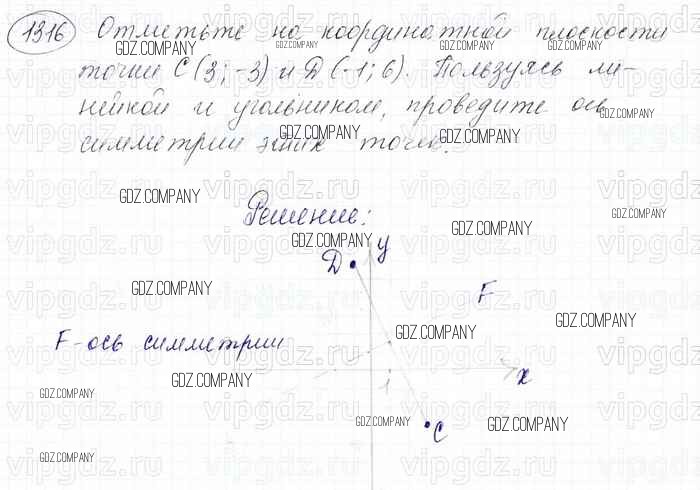 1316 Отметьте на координатной плоскости
точки C(3;-3) и D(-1;6). Пользуясь ли-
нейкой и угольником, проведите ось
симметрии этих точек.
Решение:
D y
F
F-ось симметрии
x
1
C
GDZ.COMPANY
vipgdz.ru